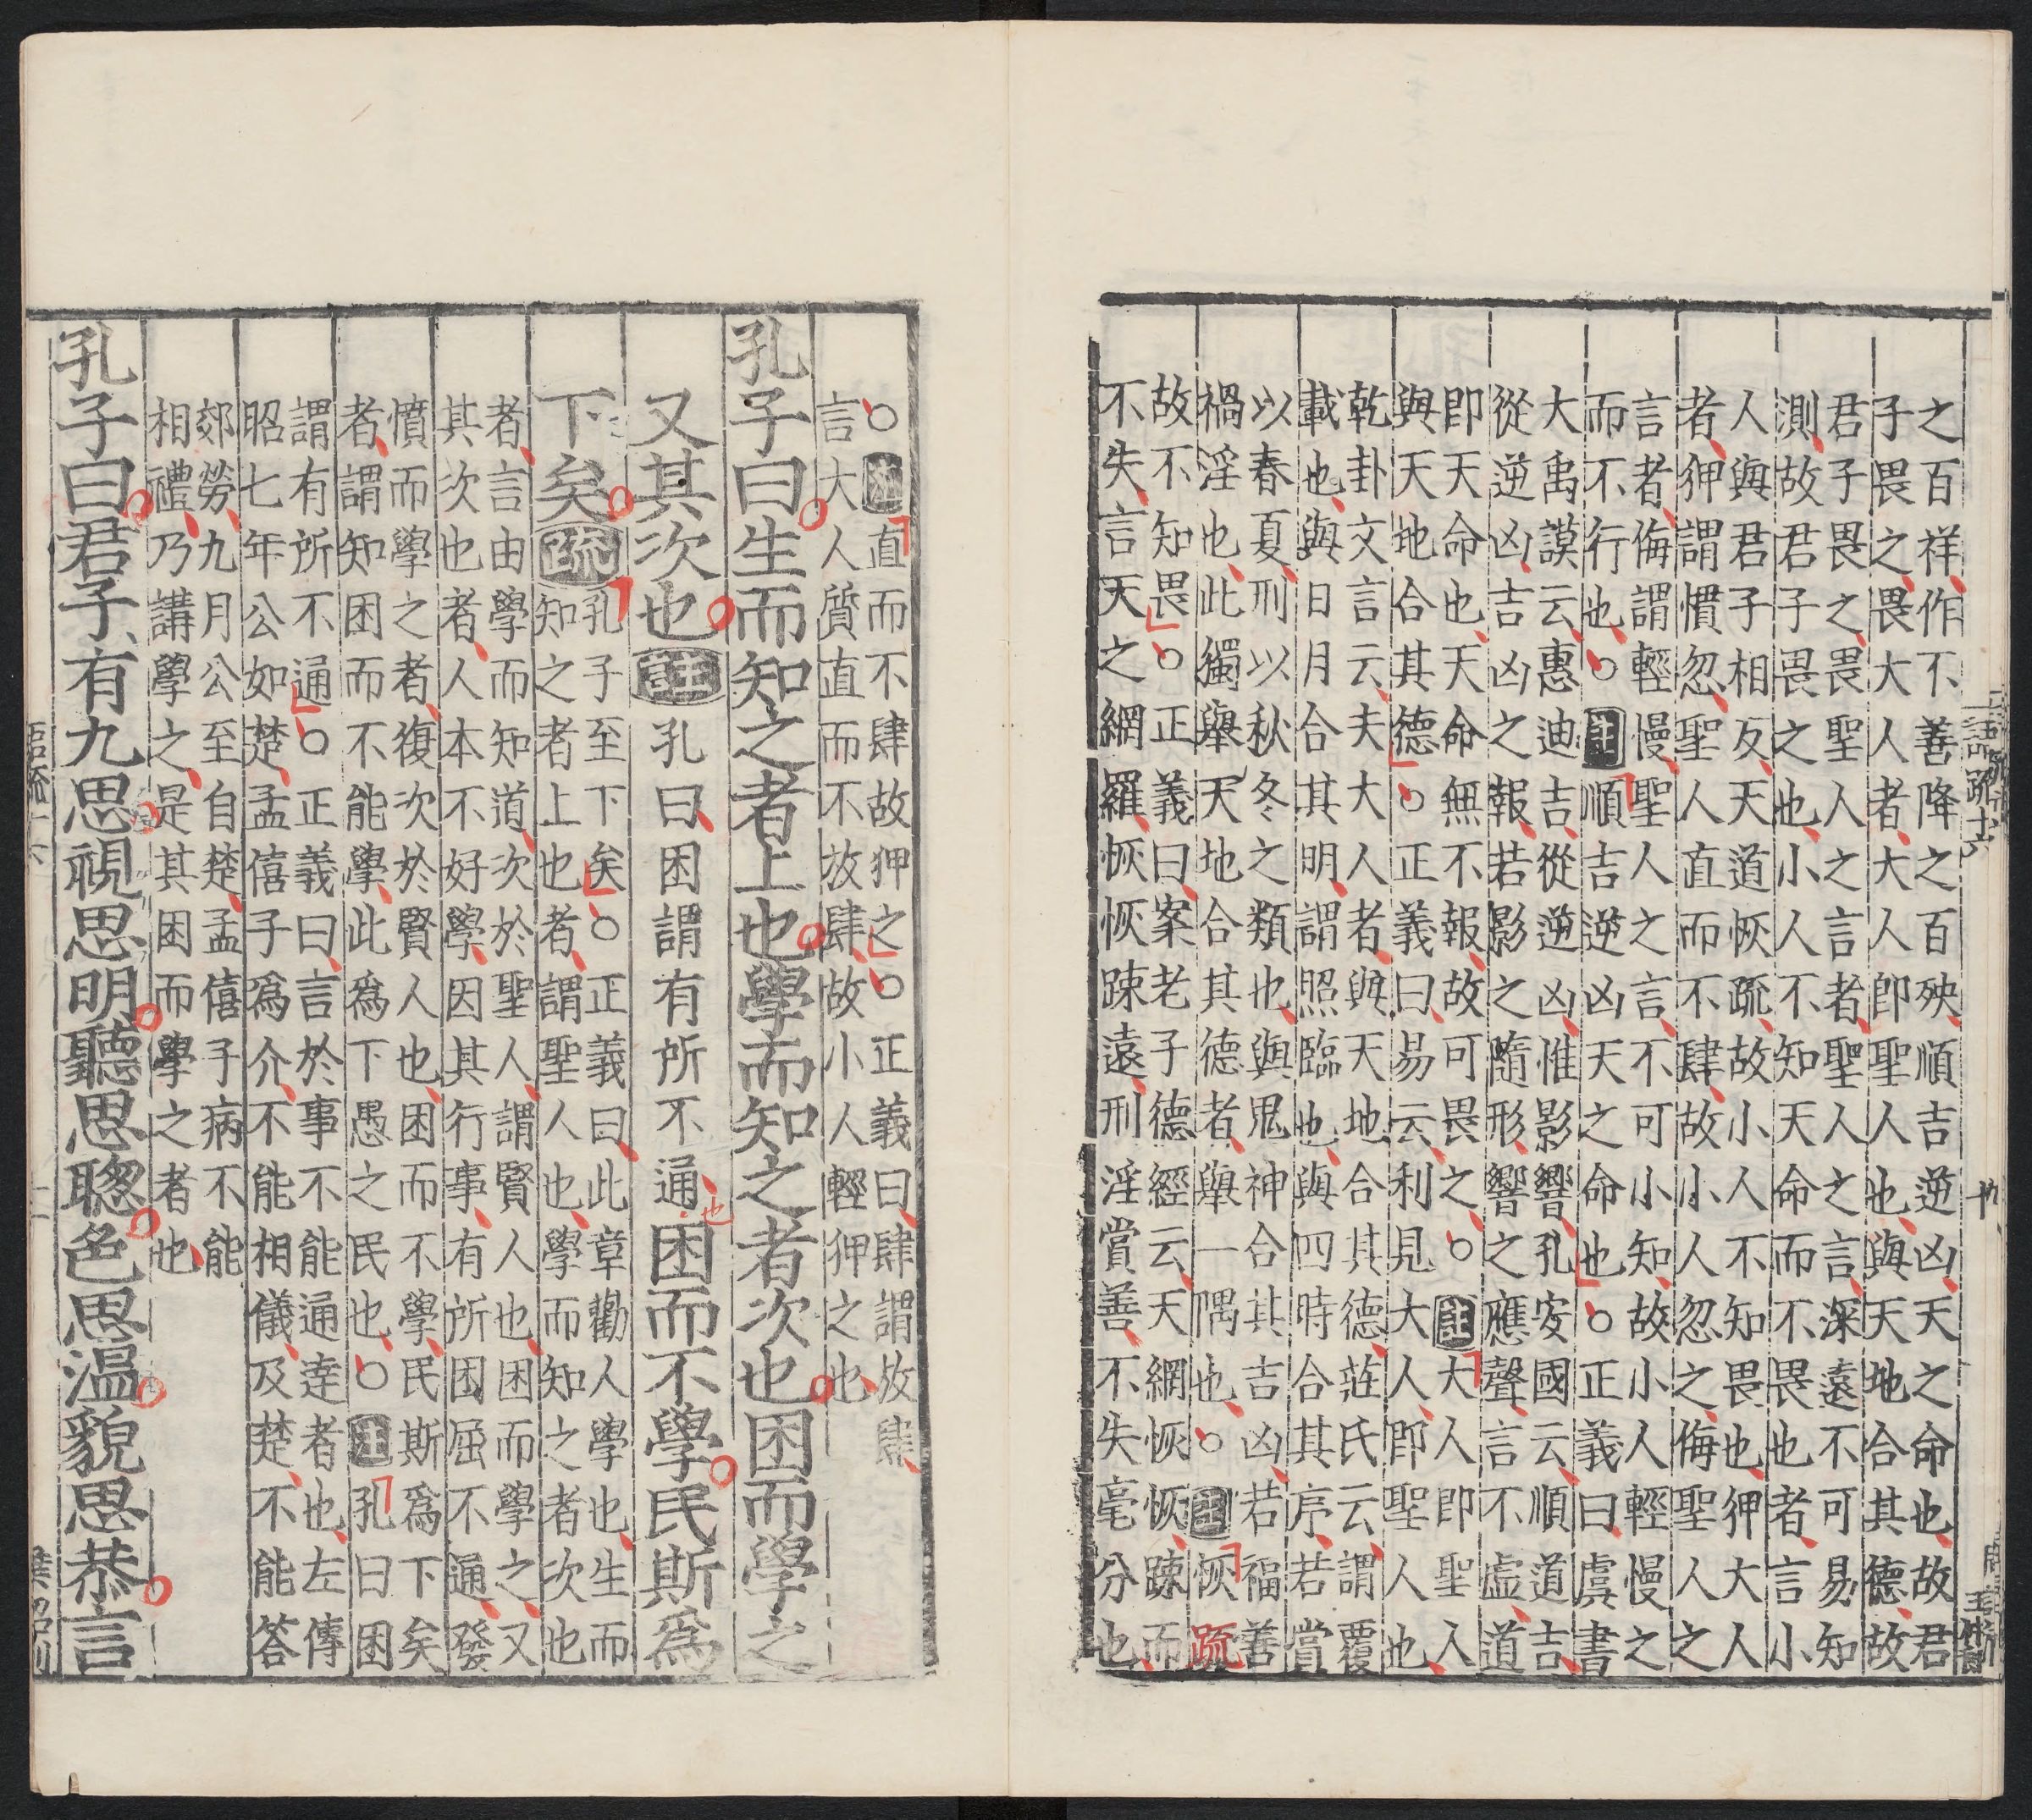 之百祥作不善降之百殃順吉逆凶天之命也故君
子畏之畏大人者大人即聖人也與天地合其德故
君子畏之畏聖人之言者聖人之言深遠不可易知
測故君子畏之也小人不知天命而不畏也者言小
人與君子相反天道恢疏故小人不知畏也狎大人
者狎謂慣忽聖人直而不肆故小人忽之侮聖人之
言者侮謂輕慢聖人之言不可小知故小人輕慢之
而不行也○註順吉逆凶天之命也○正義曰虞書
大禹謨云惠迪吉從逆凶惟影響孔安國云順道吉
從逆凶吉凶之報若影之隨形響之應聲言不虛道
即天命也天命無不報故可畏之○註大人即聖人
與天地合其德○正義曰易云利見大人即聖人也
乾卦文言云夫大人者與天地合其德莊氏云謂覆
載也與日月合其明謂照臨也與四時合其序若賞
以春夏刑以秋冬之類也與鬼神合其吉凶若福善
禍淫也此獨舉天地合其德者舉一隅也○註恢疏
故不知畏○正義曰案老子德經云天網恢恢踈而
不失言天之網羅恢恢踈遠刑淫賞善不失毫分也
○註直而不肆故狎之○正義曰肆謂放肆
言大人質直而不放肆故小人輕狎之也
孔子曰生而知之者上也學而知之者次也困而學之
又其次也註孔曰困謂有所不通也困而不學民斯爲
下矣疏孔子至下矣○正義曰此章勸人學也生而
知之者上也者謂聖人也學而知之者次也
者言由學而知道次於聖人謂賢人也困而學之又
其次也者人本不好學因其行事有所困屈不通發
憤而學之者復次於賢人也困而不學民斯爲下矣
者謂知困而不能學此爲下愚之民也○註孔曰困
謂有所不通○正義曰言於事不能通達者也左傳
昭七年公如楚孟僖子爲介不能相儀及楚不能答
郊勞九月公至自楚孟僖子病不能
相禮乃講學之是其困而學之者也
孔子曰君子有九思視思明聽思聰色思温貌思恭言